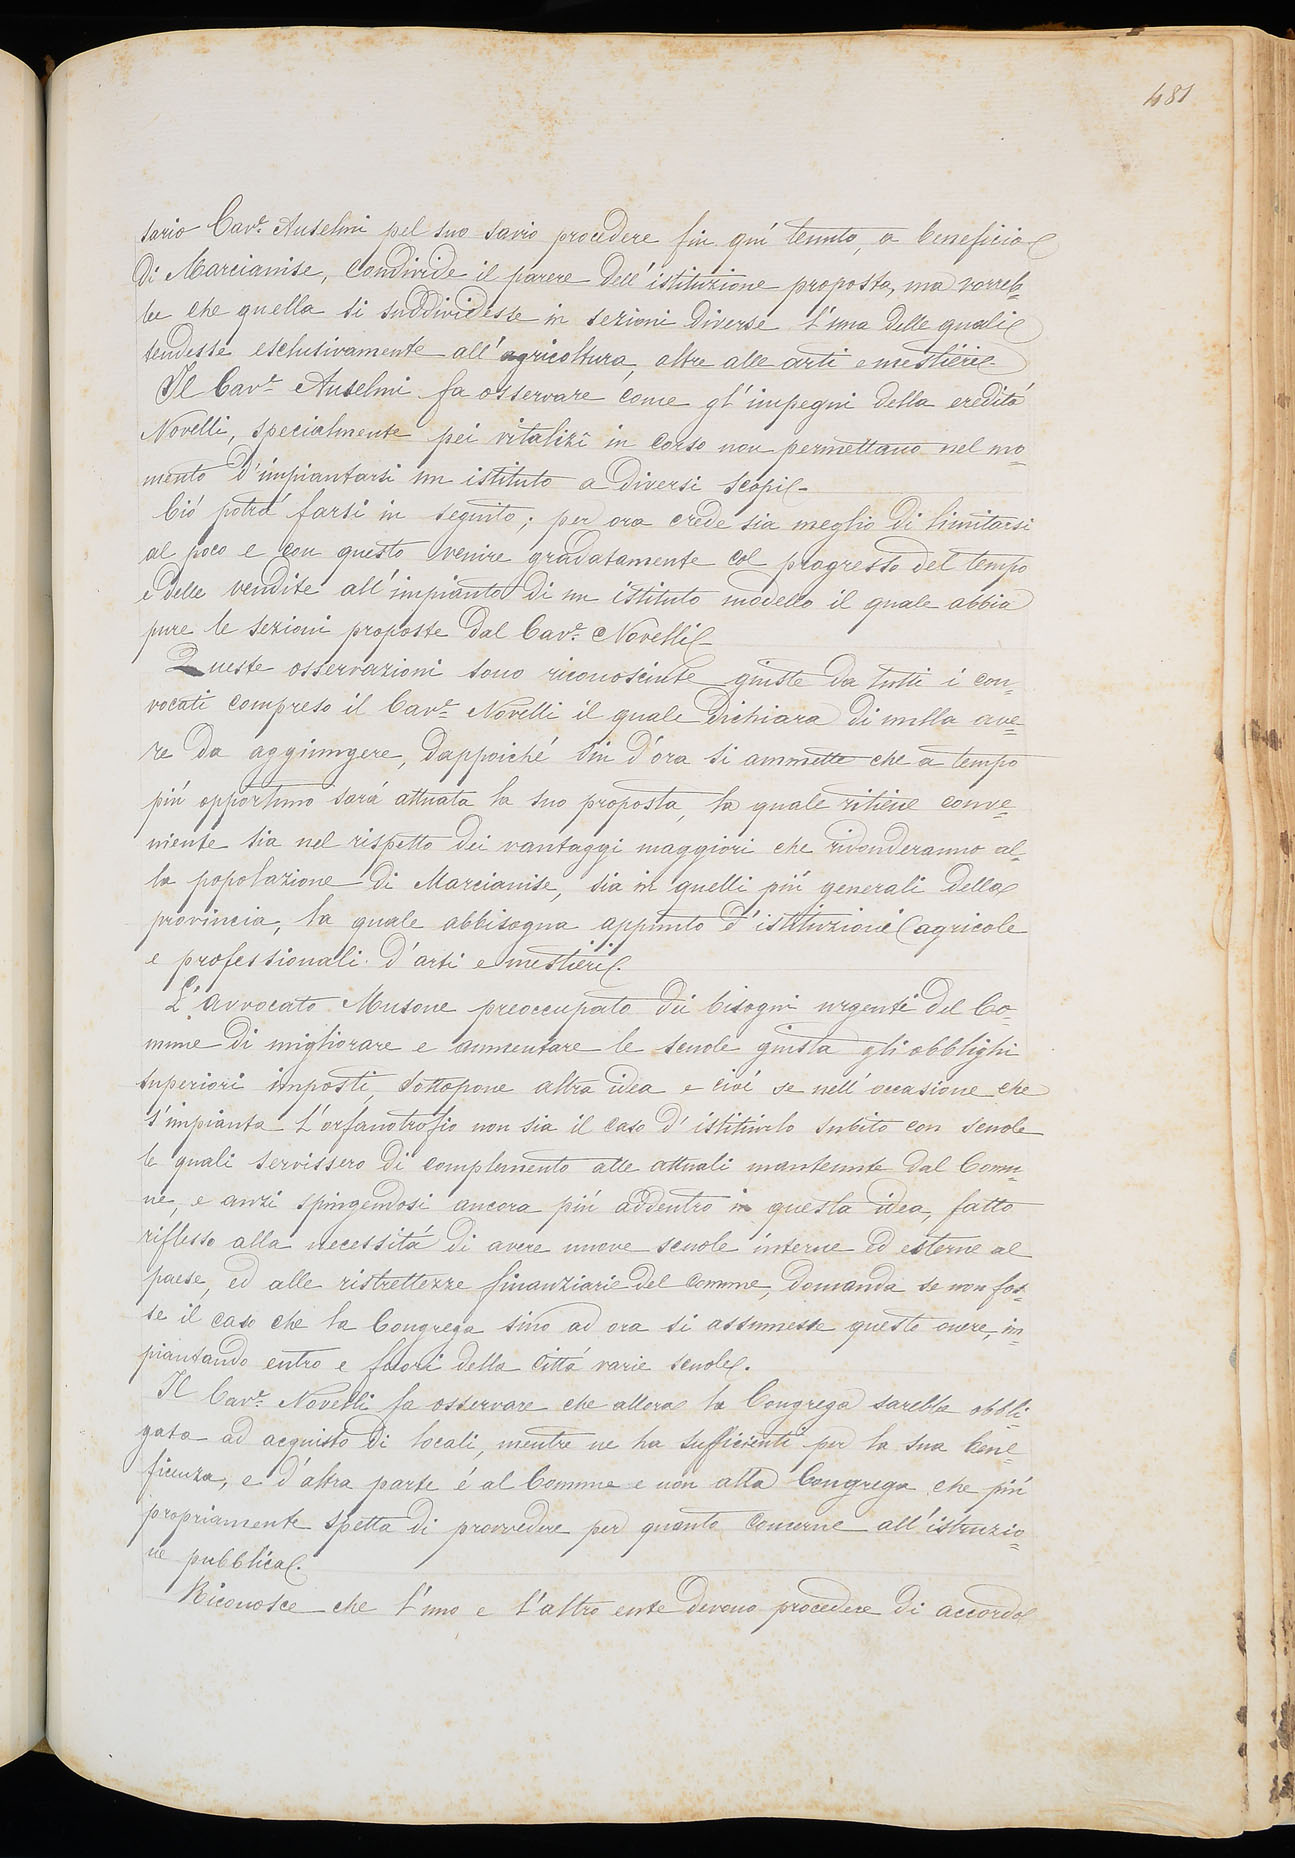 481
sario Cav.e Anselmi pel suo savio procedere fin quí tenuto, a beneficio
di Marcianise, condivide il parere dell'istituzione proposta, ma vorreb=
be che quella si suddividesse in sezioni diverse l'una delle quali
tendesse esclusivamente all'agricoltura, oltre alle arti e mestieri.
Il Cav.e Anselmi fa osservare come gl'impegni della ereditá
Novelli, specialmente pei vitalizî in corso non permettano nel mo=
mento d'impiantarsi un istituto a diversi scopi.
Ció potrá farsi in seguito; per ora crede sia meglio di limitarsi
al poco e con questo venire gradatamente col progresso del tempo
e delle vendite all'impianto di un istituto modello il quale abbia
pure le sezioni proposte dal Cav.e Novelli.
Queste osservazioni sono riconosciute giuste da tutti i con=
vocati compreso il Cav.e Novelli il quale dichiara di nulla ave=
re da aggiungere, dappoiché sin d'ora si ammette che a tempo
piú opportuno sará attuata la suo proposta, la quale ritiene conve=
niente sia nel rispetto dei vantaggi maggiori che ridonderanno al=
la popolazione di Marcianise, sia in quelli piú generali della
provincia, la quale abbisogna appunto d'istituzioni agricole
e professionali d'arti e mestieri.
L'avvocato Musone preoccupato dei bisogni urgenti del Co=
mune di migliorare e aumentare le scuole giusta gli obblighi
superiori imposti, sottopone altra idea e cioé se nell'occasione che
s'impianta l'orfanotrofio non sia il caso d'istituirlo subito con scuole
le quali servissero di complemento alle attuali mantenute dal Comu=
ne, e anzi spingendosi ancora piú addentro in questa idea, fatto
riflesso alla necessitá di avere nuove scuole interne ed esterne al
paese, ed alle ristrettezze finanziarie del comune, domanda se non fos=
se il caso che la Congrega sino ad ora si assumesse questo onere, im=
piantando entro e fuori della cittá varie scuole.
Il Cav.e Novelli fa osservare che allora la Congrega sarebbe obbli=
gata ad acquisto di locali, mentre ne ha sufficienti per la sua bene=
ficenza, e d'altra parte é al Comune e non alla Congrega che piú
propriamente spetta di provvedere per quanto concerne all'istruzio=
ne pubblica.
Riconosce che l'uno e l'altro ente devono procedere di accordo